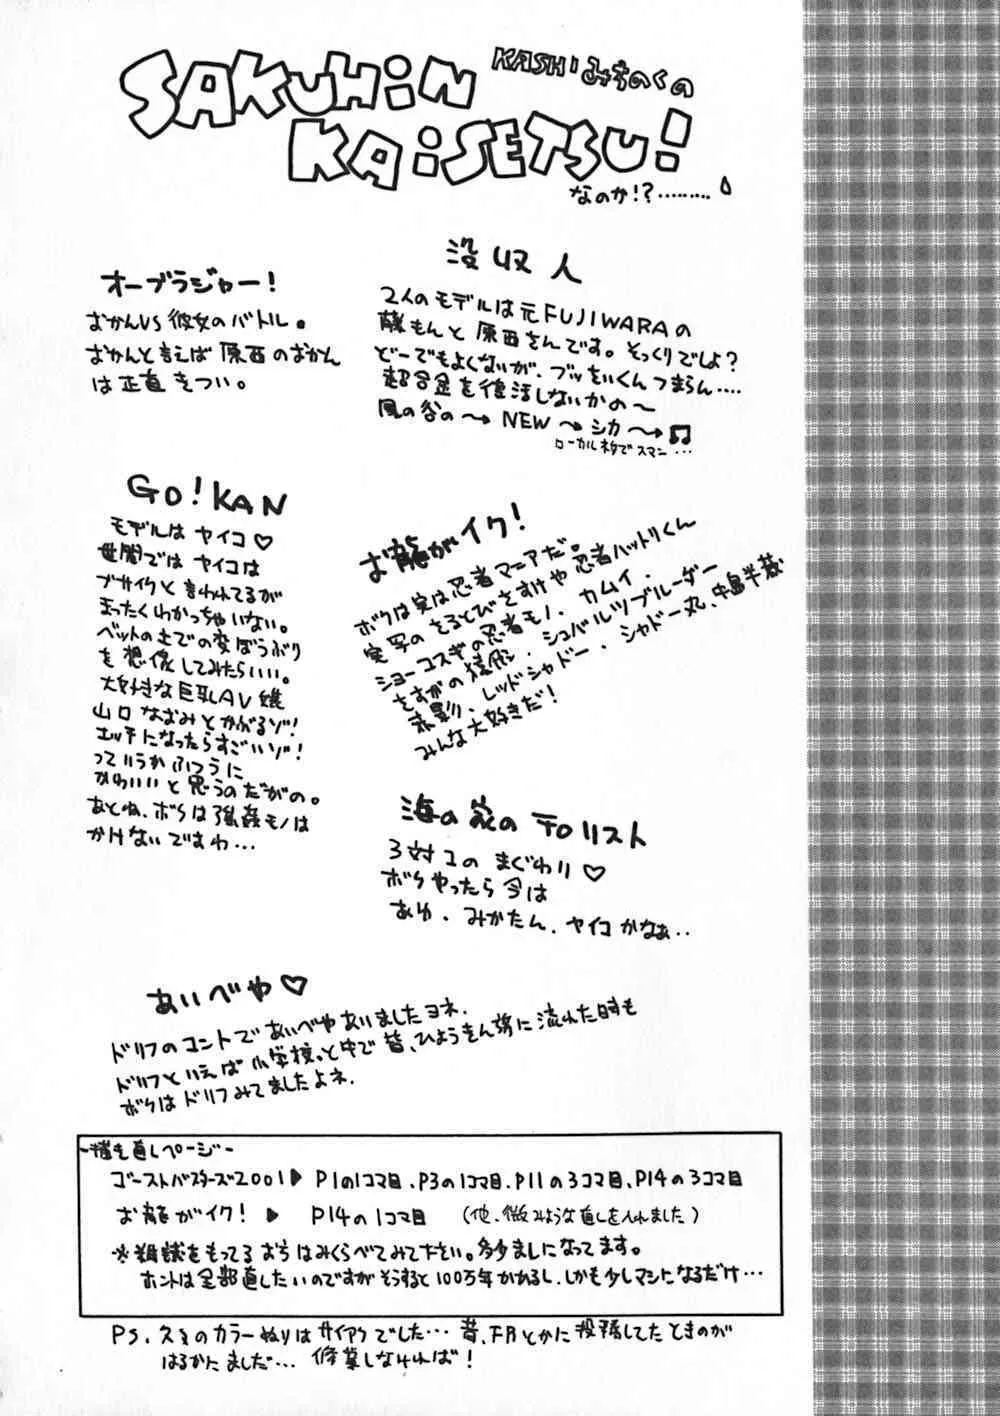 SAKUHiN
KASHIみちのくの
KAiSETSU!
なのか!?………
オーブラジャー!
おかんVS彼女のバトル。
おかんと言えば原西のおかん
は正直きつい。
没収人
2人のモデルは元FUJIWARAの
藤もんと原西さんです。そっくりでしょ?
どーでもよくないが、ブッをいくんつまらん‥‥
超合金を復活しないかの〜
風の谷の〜→ NEW 〜→シカ〜→♫
ローカルネタでスマン…
GO!KAN
モデルは ヤイコ♡
世間では ヤイコは
ブサイクと言われてるが
まったくわかっちゃいない。
ベットの上での変ぼうぶり
を想像してみたらいい。
大好きな巨乳AV嬢
山口なおみとかがるゾ!
エッチになったらすごいゾ!
っていうかふつうに
かわいいと思うのだがの。
あとね、ボクは強姦モノは
かけないですわ…
お龍がイク!
ボクは実は忍者マニアだ。
実写のさるとびさすけや忍者ハットリくん
ショーコスギの忍者モノ、カムイ、
さすがの猿飛、シュバルツブルーダー
赤影、レッドシャドー、シャドー丸、中島半蔵
みんな大好きだ!
海の家のテロリスト
3対1のまぐわり♡
ボクやったら今は
あゆ、みかたん、ヤイコかなぁ‥
あいべや♡
ドリフのコントであいべやありましたヨネ.
ドリフといえば小学校っと中で皆、ひょうきん族に流れた時も
ボクはドリフみてましたよネ.
-描き直しページ-
ゴーストバスターズ2001▶ P1の1コマ目、P3の1コマ目、P11の3コマ目、P14の3コマ目
お龍がイク! ▶ P14の1コマ目 (他、微みような直しを入れました)
※雑誌をもってるおちはみくらべてみて下さい。多少ましになってます。
ホントは全部直したいのですがそうすると100万年かかるし、しかも少しマシになるだけ…
PS、久々のカラーぬりはサイアクでした… 昔、FRとかに投稿してたときのが
はるかにましだ… 修業しなければ!